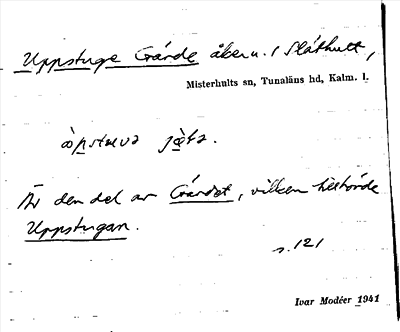 Uppstuge Gärde åker u. i Släthult,
Misterhults sn, Tunaläns hd, Kalm. l.
jæ̀ta.
Är den del av Gärdet, vilken tillhörde
Uppstugan.
s. 121
Ivar Modéer 1941